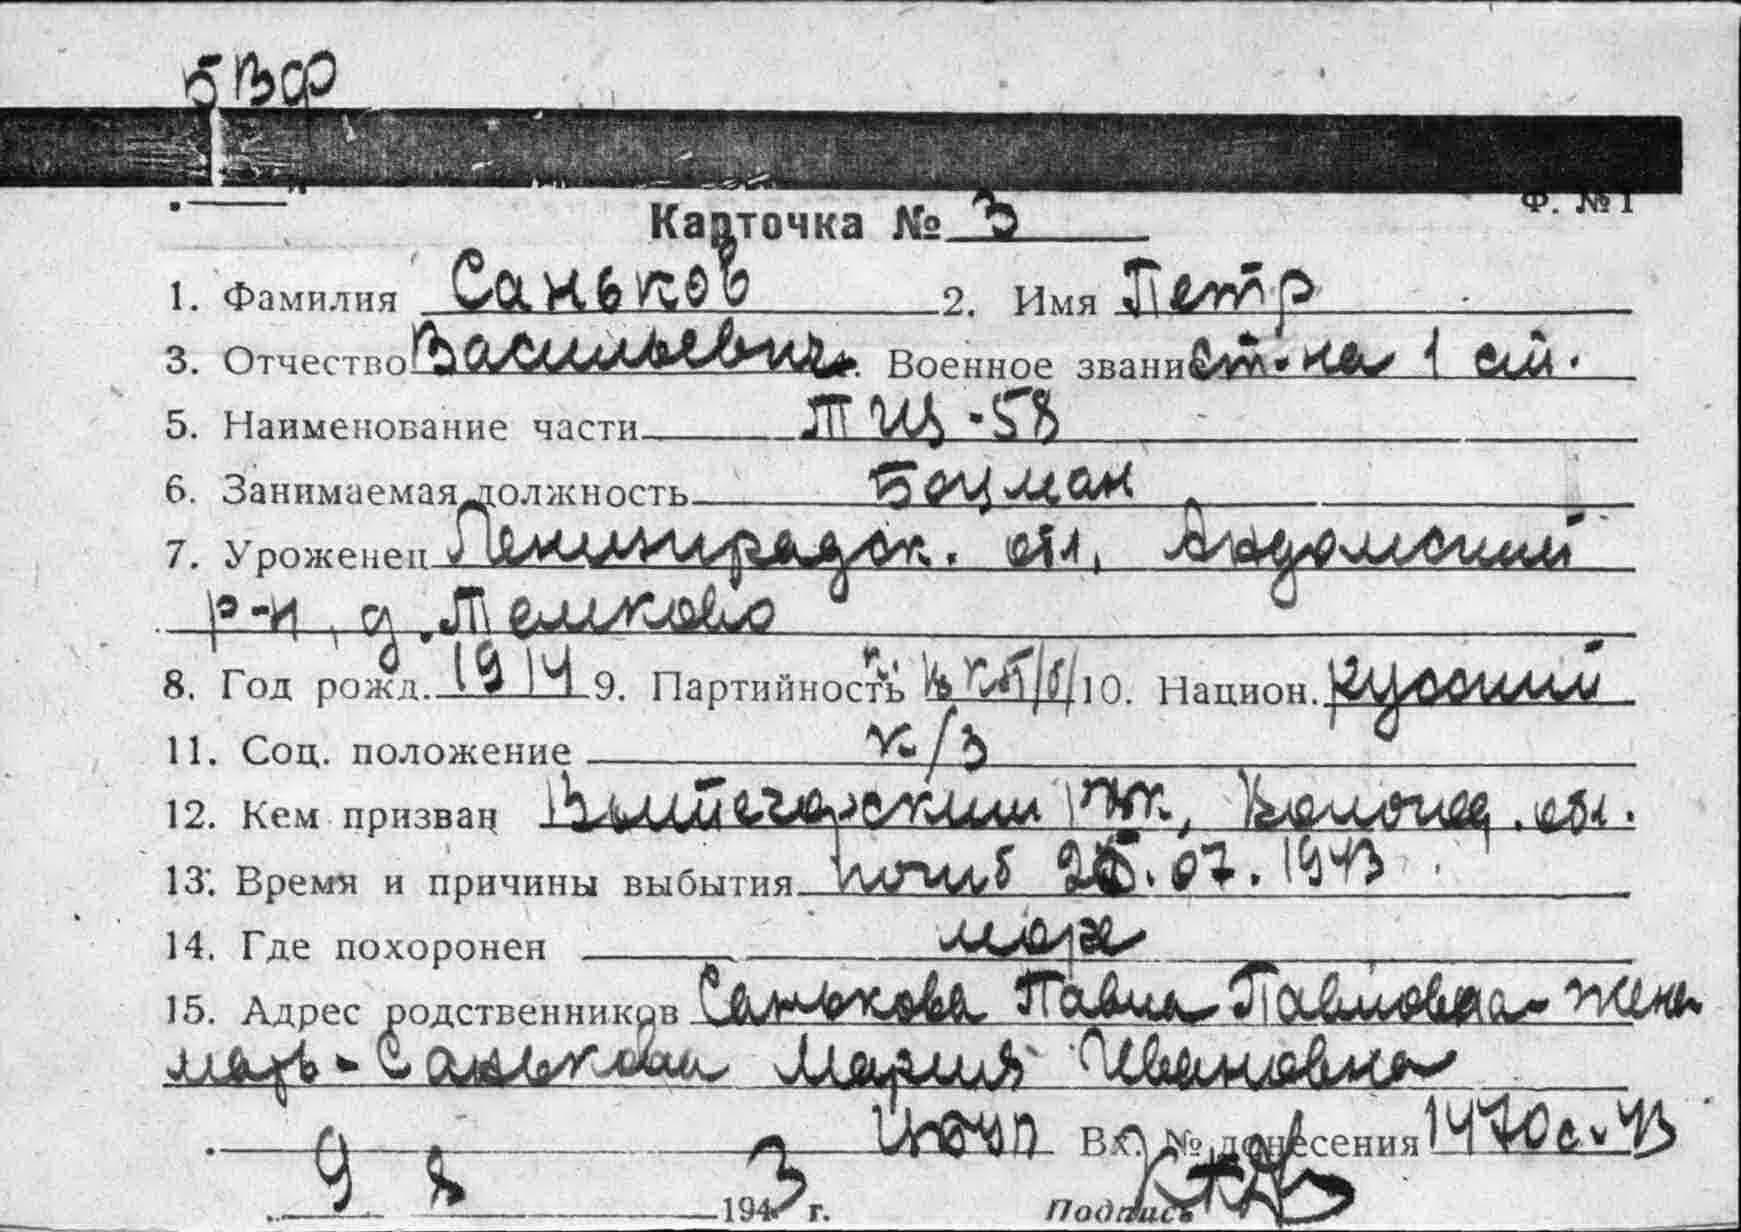 БВФ
Ф. № 1
Карточка № 3
1. Фамилия Саньков 2. Имя Петр
3. Отчество Васильевич. Военное звани ст-на 1 ст.
5. Наименование части ТЩ-58
6. Занимаемая должность Боцман
7. Уроженец Ленинградск. обл, Андомский
р-н, д. Темково
8. Год рожд. 1914 9. Партийность к. ВКП/б/ 10. Национ. русский
11. Соц. положение к/з
12. Кем призван Вытегорским РВК, Вологод. обл.
13. Время и причины выбытия погиб 25.07.1943
14. Где похоронен море
15. Адрес родственников Санькова Павла Павловна - жена
мать - Санькова Мария Ивановна
Вх. № донесения 1470с-43
9 8 1943 г. Подпись